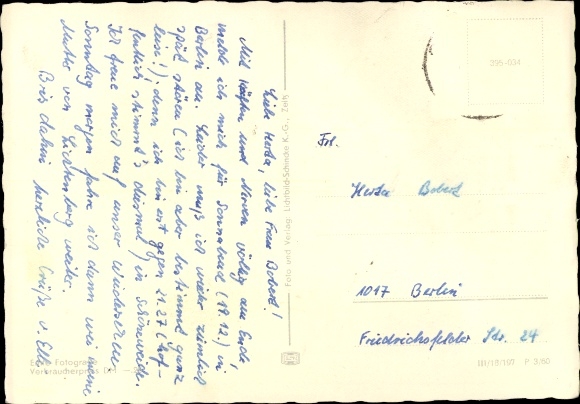 Liebe Herta, liebe Frau Bobert!
Mit Kräften und Nerven völlig am Ende,
melde ich mich für Sonnabend (19.12.) in
Berlin an. Leider muß ich wieder ziemlich
spät stören (ich bin aber bestimmt ganz
leise!), denn ich bin erst gegen 21.27 (hof-
fentlich stimmt's diesmal) in Schöneweide.
Ich freue mich auf unser Wiedersehen.
Sonntag morgen fahre ich dann mit meine
Mutter von Lichtenberg weiter.
Bis dahin herzliche Grüße v. Elli
Echte Fotografie
Verbraucherpreis DM
Foto und Verlag: Lichtbild-Schincke K.-G., Zeitz
395-034
Frl.
Herta Bobert
1017 Berlin
Friedrichsfelder Str. 24
III/18/197 P 3/60